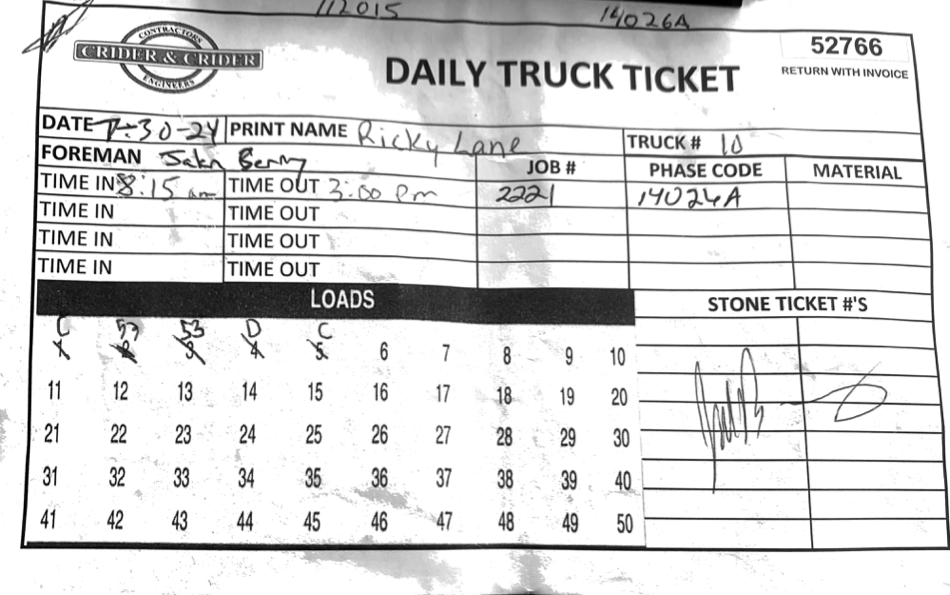 112015 14026A
CONTRACTORS
CRIDER & CRIDER
ENGINEERS
DAILY TRUCK TICKET
52766
RETURN WITH INVOICE
DATE 7-30-24 PRINT NAME Ricky Lane TRUCK # 10
FOREMAN Jake Berry JOB # PHASE CODE MATERIAL
TIME IN 8:15 am TIME OUT 3:00 Pm 2221 14026A
TIME IN TIME OUT
TIME IN TIME OUT
TIME IN TIME OUT
LOADS STONE TICKET #'S
C 53 53 D C
1 2 3 4 5 6 7 8 9 10
11 12 13 14 15 16 17 18 19 20
21 22 23 24 25 26 27 28 29 30
31 32 33 34 35 36 37 38 39 40
41 42 43 44 45 46 47 48 49 50